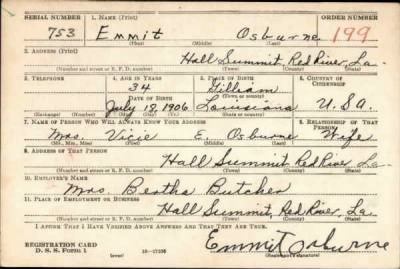 SERIAL NUMBER 1. NAME (Print) ORDER NUMBER
753 Emmit Osburne 199
(First) (Middle) (Last)
2. ADDRESS (Print)
Hall Summit Red River La.
(Number and street or R. F. D. number) (Town) (County) (State)
3. TELEPHONE 4. AGE IN YEARS 5. PLACE OF BIRTH 6. COUNTRY OF CITIZENSHIP
34 Gilliam
DATE OF BIRTH (Town or county)
July 13, 1906 Louisiana U.S.A.
(Exchange) (Number) (Mo.) (Day) (Yr.) (State or country)
7. NAME OF PERSON WHO WILL ALWAYS KNOW YOUR ADDRESS 8. RELATIONSHIP OF THAT PERSON
Mrs. Vicie E. Osburne Wife
(Mr., Mrs., Miss) (First) (Middle) (Last)
9. ADDRESS OF THAT PERSON
Hall Summit Red River La.
(Number and street or R. F. D. number) (Town) (County) (State)
10. EMPLOYER'S NAME
Mrs. Bertha Butcher
11. PLACE OF EMPLOYMENT OR BUSINESS
Hall Summit, Red River, La.
(Number and street or R. F. D. number) (Town) (County) (State)
I AFFIRM THAT I HAVE VERIFIED ABOVE ANSWERS AND THAT THEY ARE TRUE.
REGISTRATION CARD
D. S. S. Form 1 Emmit Osburne
(Registrant's signature)